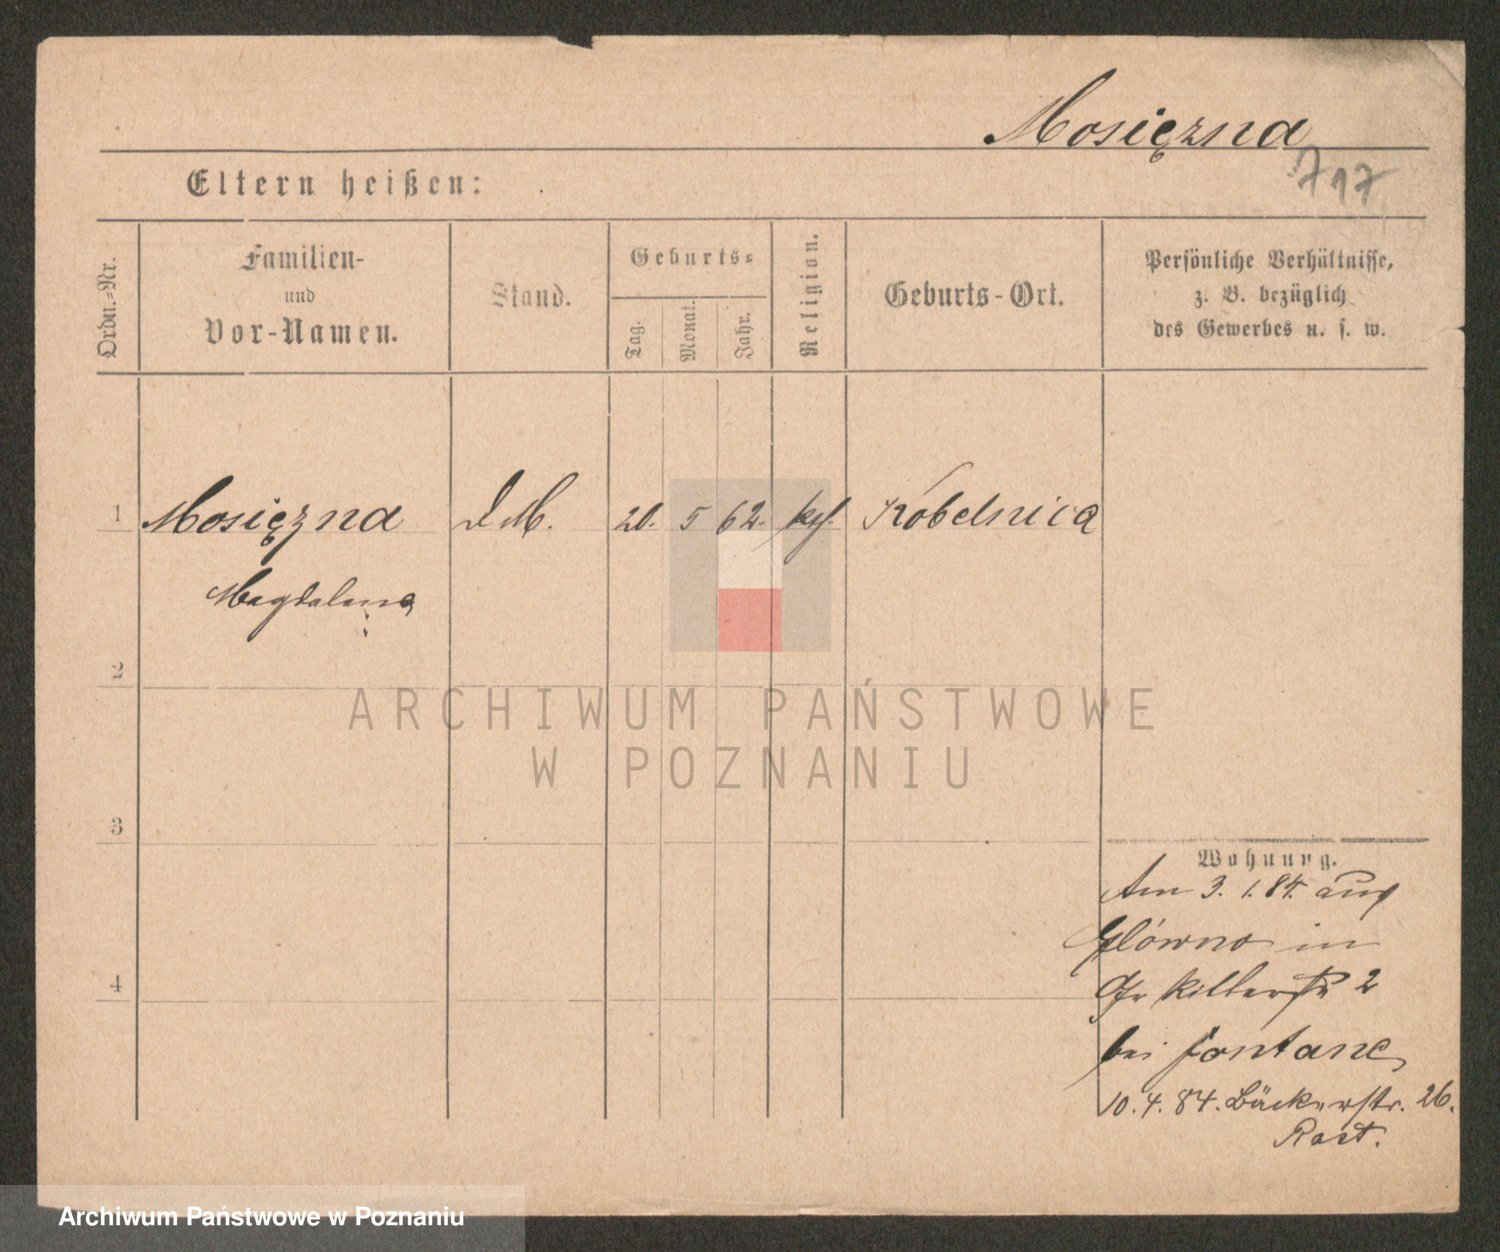 Mosięzna
717
Eltern heißen:
Ordn.=Nr.
Familien-
und
Vor-Namen.
Stand.
Geburts=
Tag.
Monat.
Jahr.
Religion.
Geburts-Ort.
Persönliche Verhältnisse,
z. B. bezüglich
des Gewerbes u. s. w.
1 Mosięzna D M. 20. 5 62. kth. Kobelnica
Magdalena
2
ARCHIWUM PAŃSTWOWE
W POZNANIU
3
Wohnung.
Am 3. 1. 84. aus
Glówno in
Gr Ritterstr 2
4
bei Fontane
10. 4. 84. Bäckerstr. 26.
Rast.
Archiwum Państwowe w Poznaniu